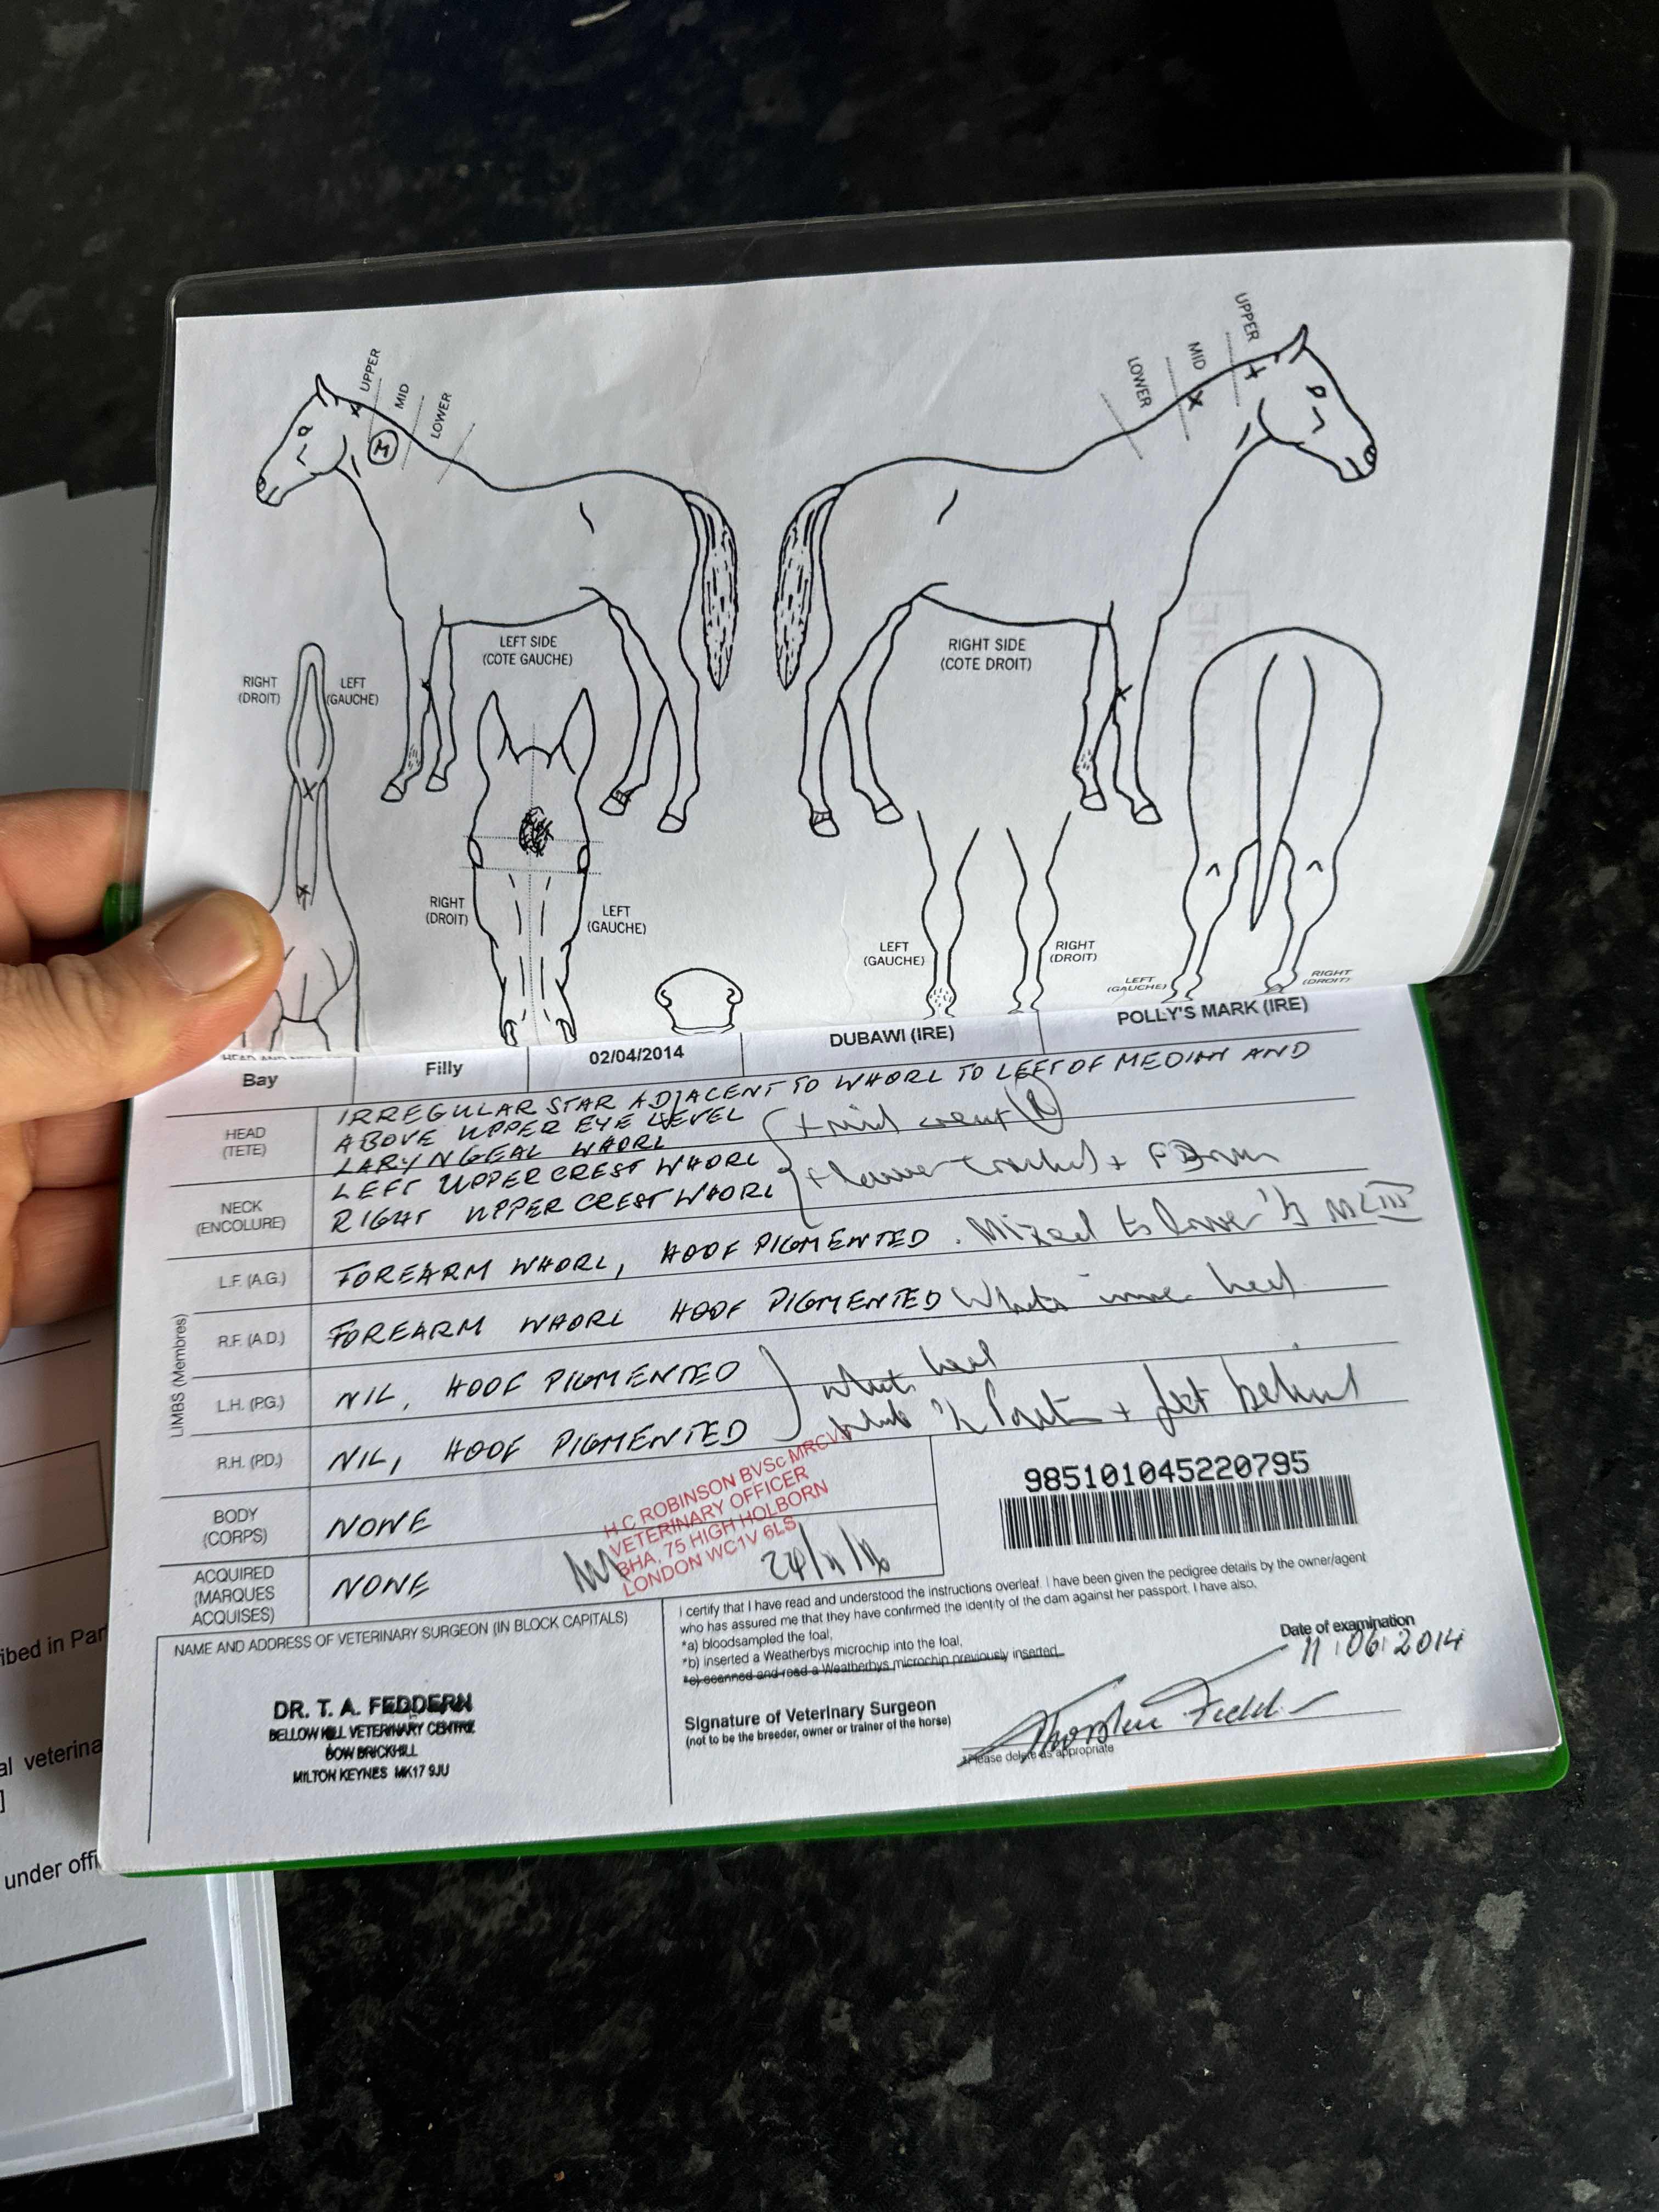 UPPER
MID
LOWER
M
UPPER
MID
LOWER
LEFT SIDE
(COTE GAUCHE)
RIGHT SIDE
(COTE DROIT)
RIGHT
(DROIT)
LEFT
(GAUCHE)
RIGHT
(DROIT)
LEFT
(GAUCHE)
LEFT
(GAUCHE)
RIGHT
(DROIT)
LEFT
(GAUCHE)
RIGHT
(DROIT)
Bay
Filly
02/04/2014
DUBAWI (IRE)
POLLY'S MARK (IRE)
HEAD
(TETE)
IRREGULAR STAR ADJACENT TO WHORL TO LEFT OF MEDIAN AND
ABOVE UPPER EYE LEVEL
LARYNGEAL WHORL
+ mid crest (R)
NECK
(ENCOLURE)
LEFT UPPER CREST WHORL
RIGHT UPPER CREST WHORL
+ lower tracheal +
LIMBS (Membres)
L.F. (A.G.)
FOREARM WHORL, HOOF PIGMENTED. Mixed to lower 1/3 MCIII
R.F. (A.D.)
FOREARM WHORL HOOF PIGMENTED White inner heel
L.H. (P.G.)
NIL, HOOF PIGMENTED
white heel
R.H. (P.D.)
NIL, HOOF PIGMENTED
white 1/2 + behind
BODY
(CORPS)
NONE
ACQUIRED
(MARQUES
ACQUISES)
NONE
H C ROBINSON BVSc MRCVS
VETERINARY OFFICER
BHA, 75 HIGH HOLBORN
LONDON WC1V 6LS
24/11/16
985101045220795
NAME AND ADDRESS OF VETERINARY SURGEON (IN BLOCK CAPITALS)
DR. T. A. FEDDERN
BELLOW HILL VETERINARY CENTRE
BOW BRICKHILL
MILTON KEYNES MK17 9JU
I certify that I have read and understood the instructions overleaf. I have been given the pedigree details by the owner/agent
who has assured me that they have confirmed the identity of the dam against her passport. I have also,
*a) bloodsampled the foal,
*b) inserted a Weatherbys microchip into the foal,
*c) scanned and read a Weatherbys microchip previously inserted
Date of examination
11/06/2014
Signature of Veterinary Surgeon
(not to be the breeder, owner or trainer of the horse)
*Please delete as appropriate
ibed in Par
al veterina
]
under offi